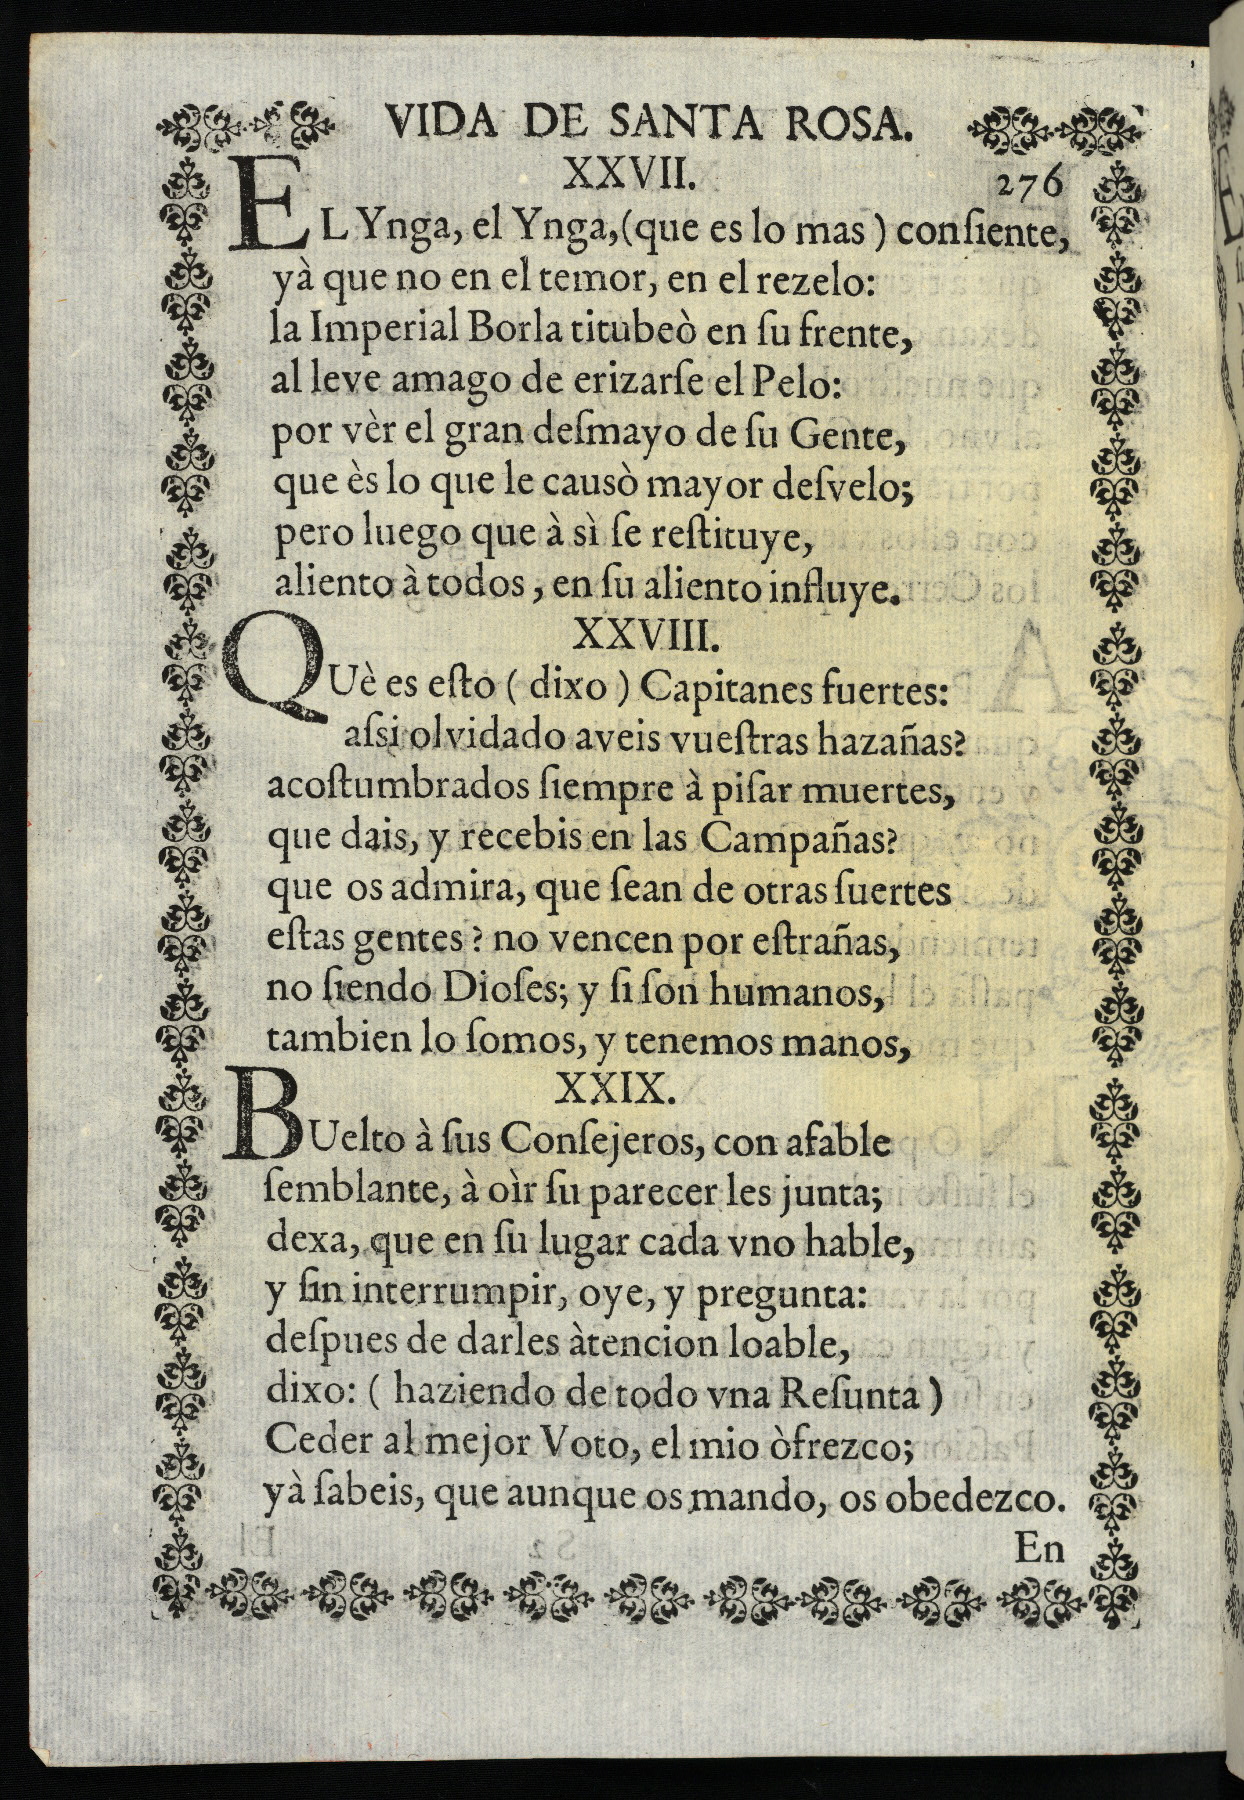 VIDA DE SANTA ROSA.
XXVII. 276
EL Ynga, el Ynga,(que es lo mas ) conſiente,
yà que no en el temor, en el rezelo:
la Imperial Borla titubeò en ſu frente,
al leve amago de erizarſe el Pelo:
por vèr el gran deſmayo de ſu Gente,
que ès lo que le causò mayor deſvelo;
pero luego que à sì ſe reſtituye,
aliento à todos, en ſu aliento influye.
XXVIII.
QUè es eſto ( dixo ) Capitanes fuertes:
aſsi olvidado aveis vueſtras hazañas?
acoſtumbrados ſiempre à piſar muertes,
que dais, y recebis en las Campañas?
que os admira, que ſean de otras ſuertes
eſtas gentes? no vencen por eſtrañas,
no ſiendo Dioſes; y ſi ſon humanos,
tambien lo ſomos, y tenemos manos,
XXIX.
BUelto à ſus Conſejeros, con afable
ſemblante, à oìr ſu parecer les junta;
dexa, que en ſu lugar cada vno hable,
y ſin interrumpir, oye, y pregunta:
deſpues de darles àtencion loable,
dixo: ( haziendo de todo vna Reſunta )
Ceder al mejor Voto, el mio òfrezco;
yà ſabeis, que aunque os mando, os obedezco.
En